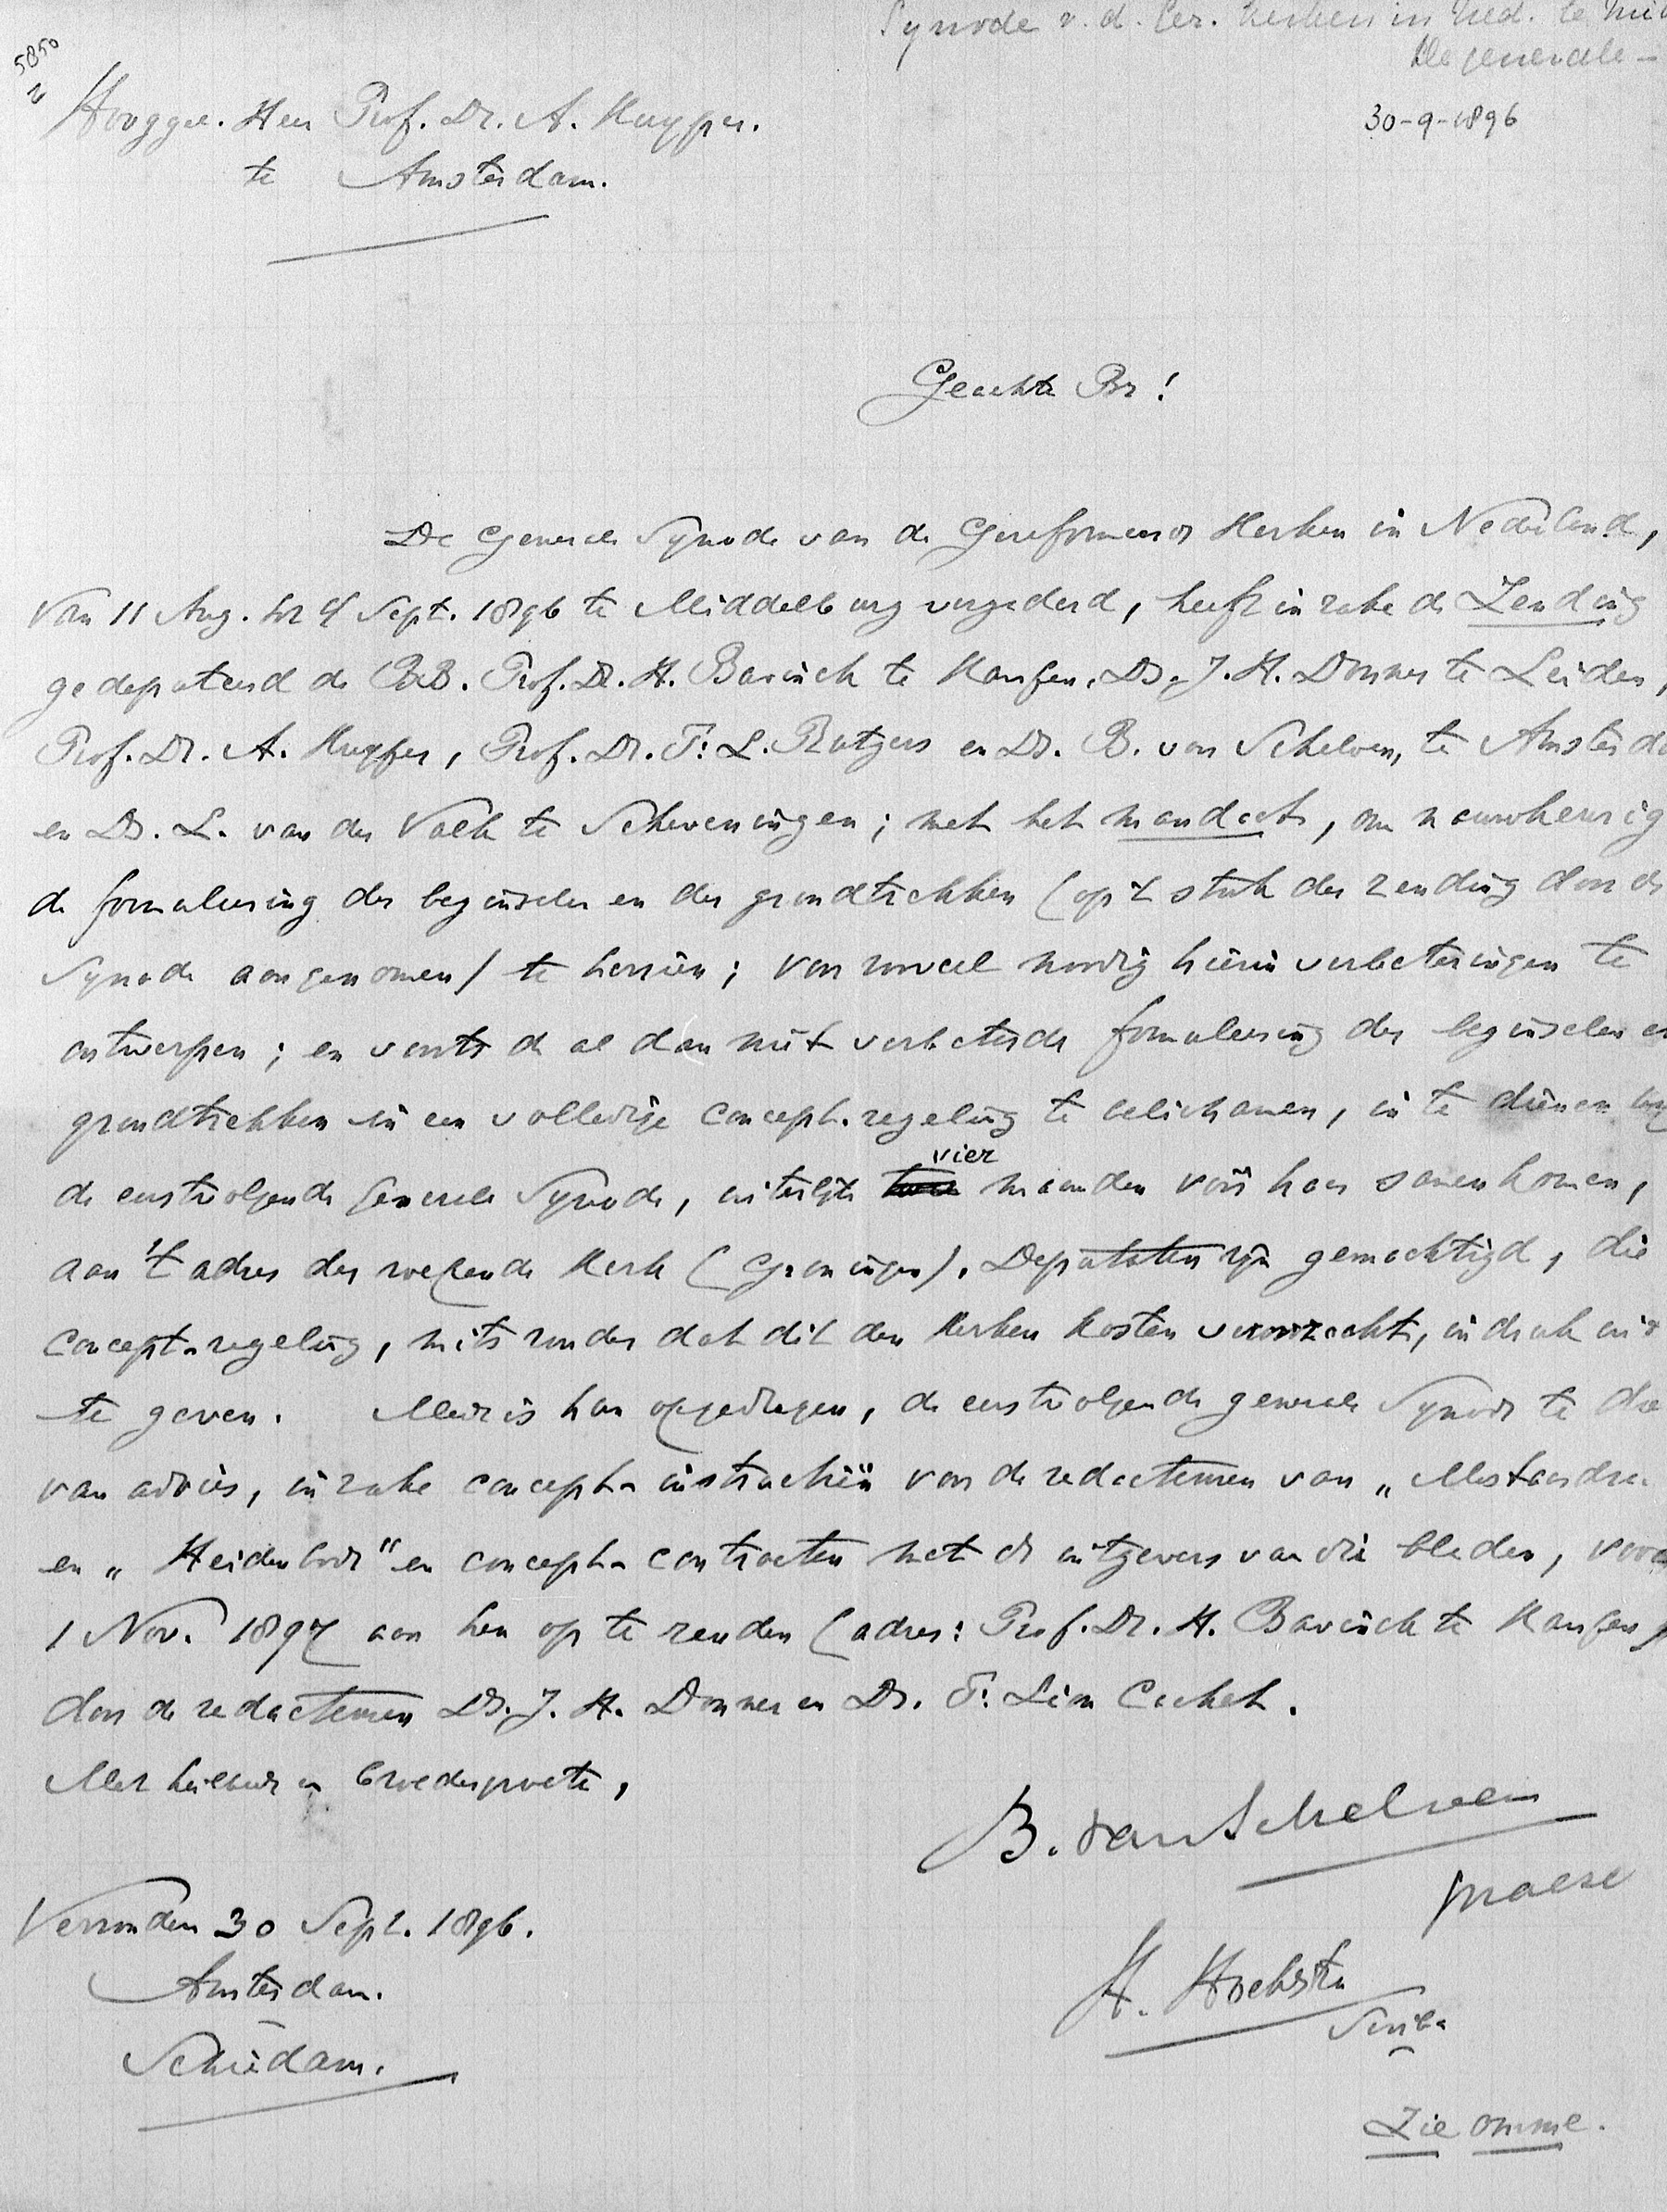 Synode v. d. Ger. Kerken in Ned. te
de generale -
5850
30-9-1896
Hooggel. Heer Prof. Dr. A. Kuyper.
te Amsterdam.
Geachte Br!
De Generale Synode van de Gereformeerde Kerken in Nederland,
van 11 Aug. tot 4 Sept. 1896 te Middelburg vergaderd, heeft in zake de Zending
gedeputeerd de BB. Prof. Dr. H. Bavinck te Kampen, Ds. J. H. Donner te Leiden,
Prof. Dr. A. Kuyper, Prof. Dr. F: L. Rutgers en Ds. B. van Schelven, te Amsterda
en Ds. L. van der Valk te Scheveningen; met het mandaat, om nauwkeurig
de formuleering der beginselen en der grondtrekken (op 't stuk der zending door de
Synode aangenomen) te herzien; voor zooveel noodig hierin verbeteringen te
ontwerpen; en voorts de al dan niet verbeterde formuleering der beginselen en
grondtrekken in een volledige concept-regeling te belichamen, in te dienen bij
vier
de eerstvolgende generale Synode, uiterlijk maanden vóór haar samenkomen,
aan 't adres der roepende Kerk (Groningen). Deputaten zijn gemachtigd, die
concept-regeling, mits zonder dat dit den Kerken kosten veroorzaakt, in druk uit
te geven. Mede is hun opgedragen, de eerstvolgende generale Synode te die
van advies, in zake concept-instructiën voor de redacteuren van „Mosterdza
en „Heidenbode" en concept-contracten met de uitgevers van die bladen, voor
1 Nov. 1897 aan hen op te zenden (adres: Prof. Dr. H. Bavinck te Kampen)
door de redacteuren Ds. J. H. Donner en Ds. F: Lion Cachet.
Met heilbede en broedergroete,
B. van Schelven
praese
Verzonden 30 Sept. 1896.
Amsterdam.
Schiedam.
H. Hoekstra
Scriba
Zie omme.